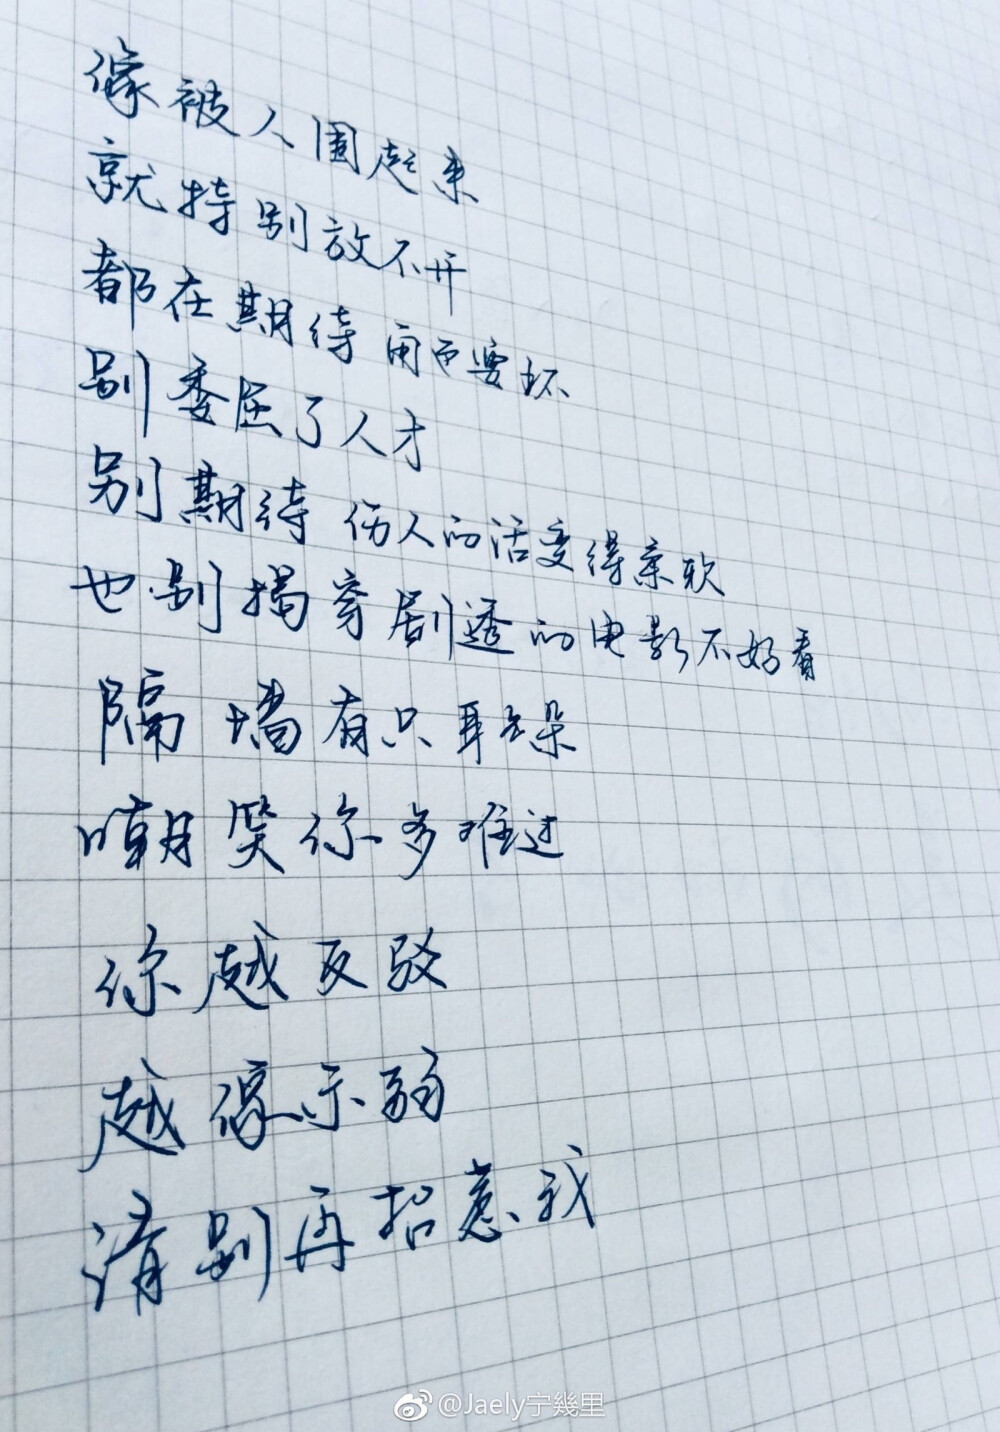 像被人围起来
就特别放不开
都在期待 闹而要坏
别委屈了人才
别期待 伤人的话变得柔软
也别揭穿剧透的电影不好看
隔墙有只耳朵
嘲笑你多难过
你越反驳
越像示弱
请别再招惹我
@Jaely宁幾里